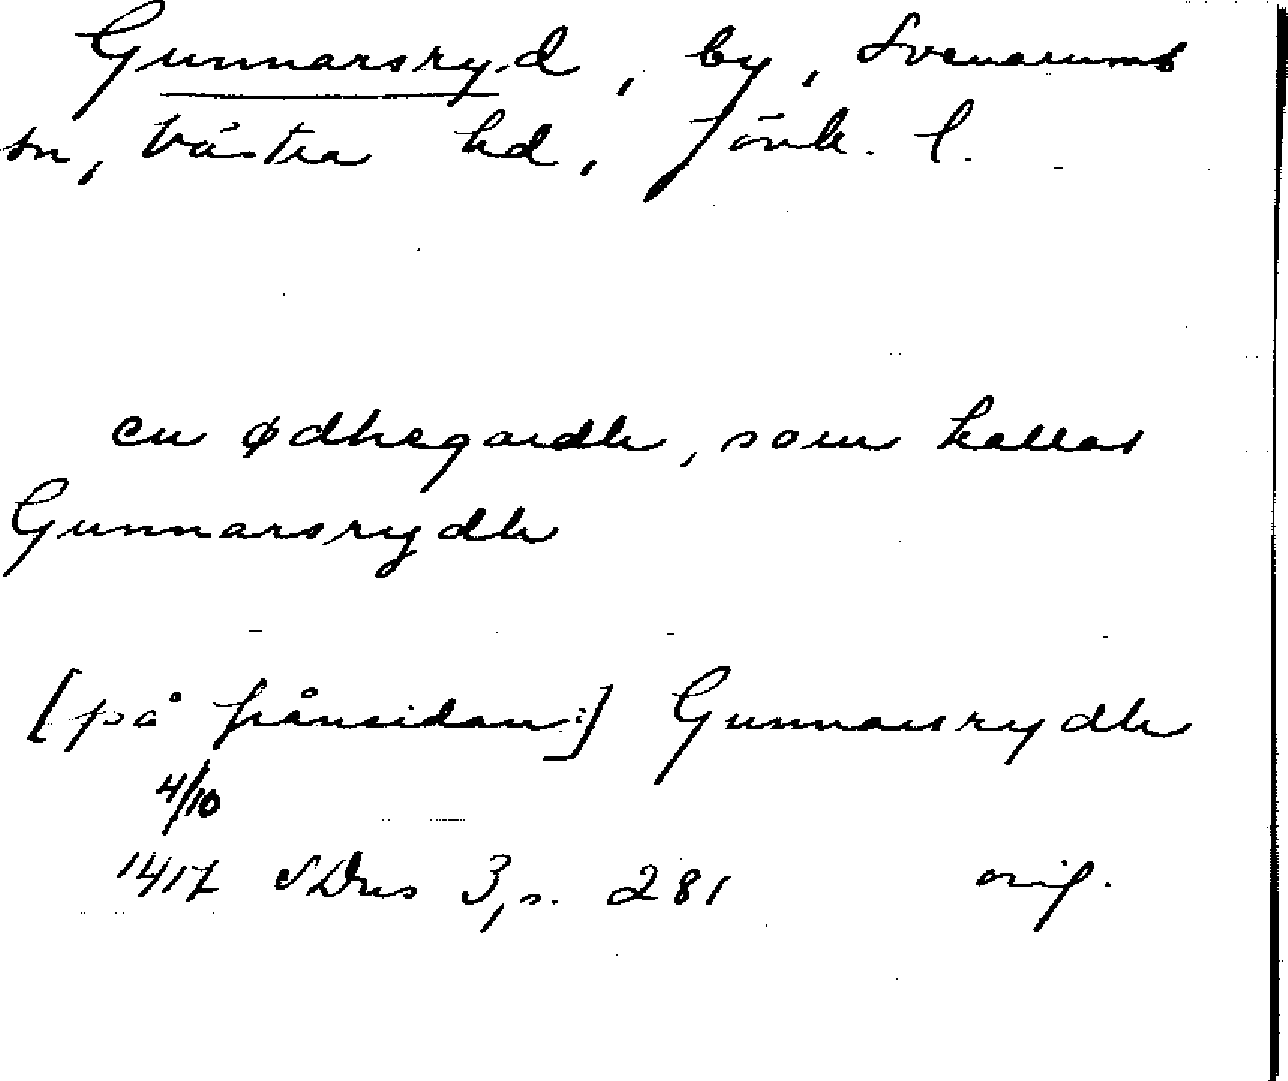 Gunnarsryd, by, Svenarums
sn, Västra hd, Jönk. l.
en ødhegardh, som kallas
Gunnarsrydh
[på frånsidan:] Gunnarsrydh
4/10
1417 SDns 3, s. 281 orig.